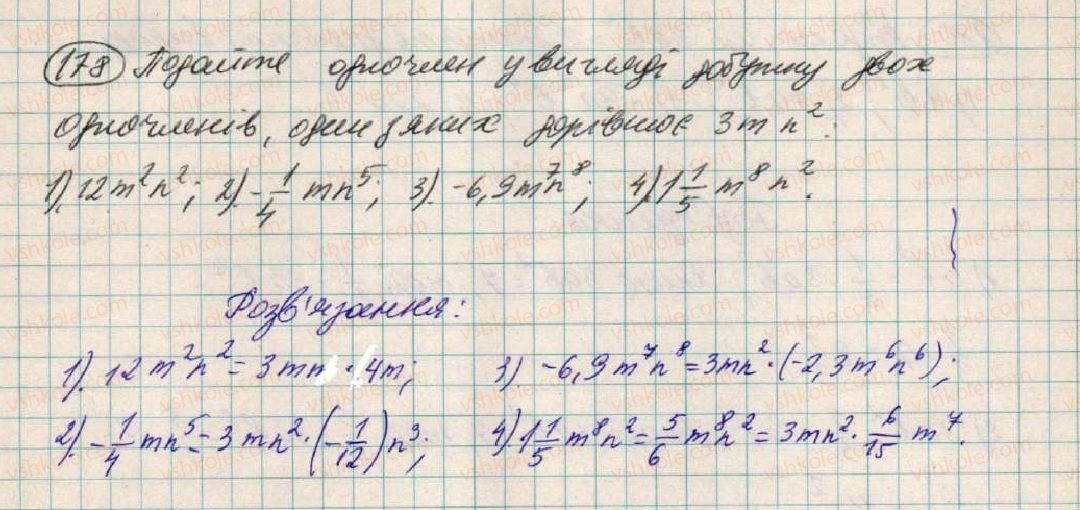 178 Подайте одночлен у вигляді добутку двох
одночленів, один з яких дорівнює 3mn².
1) 12m²n²; 2) -1/4 mn⁵; 3) -6,9m⁷n⁸; 4) 1 1/5 m⁸n².
Розв'язання:
1) 12m²n² = 3mn · 4m;
2) -1/4 mn⁵ = 3mn² · (-1/12)n³;
3) -6,9m⁷n⁸ = 3mn² · (-2,3m⁶n⁶);
4) 1 1/5 m⁸n² = 5/6 m⁸n² = 3mn² · 6/15 m⁷.